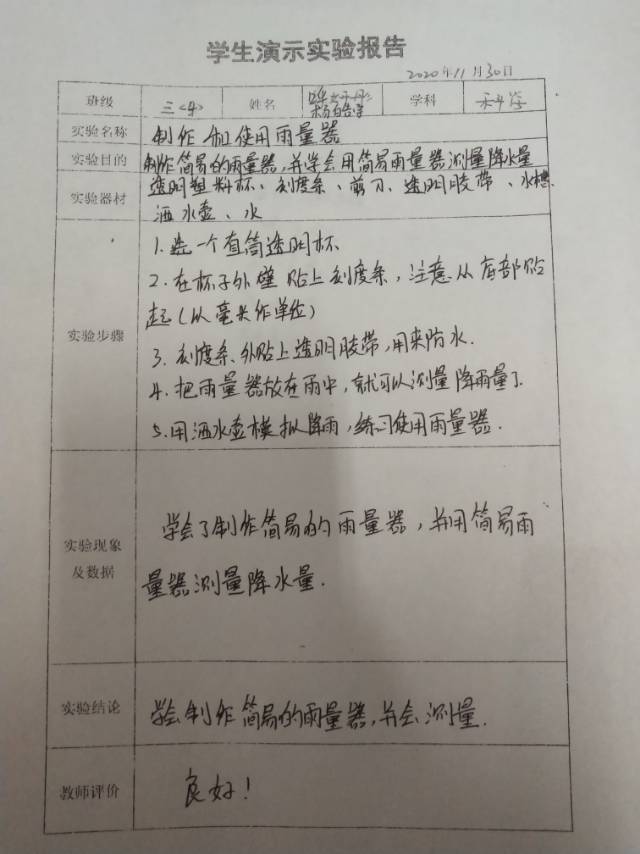 学生演示实验报告
2020年11月30日
班级 三<4> 姓名 学科 科学
实验名称 制作和使用雨量器
实验目的 制作简易的雨量器,并学会用简易雨量器测量降水量
实验器材 透明塑料杯、刻度条、剪刀、透明胶带、水槽
洒水壶、水
实验步骤
1.选一个直筒透明杯
2.在杯子外壁贴上刻度条,注意从底部贴
起(以毫米作单位)
3.刻度条外贴上透明胶带,用来防水.
4.把雨量器放在雨中,就可以测量降雨量了.
5.用洒水壶模拟降雨,练习使用雨量器.
实验现象
及数据
学会了制作简易的雨量器,并用简易雨
量器测量降水量.
实验结论 学会制作简易的雨量器,并会测量.
教师评价 良好!